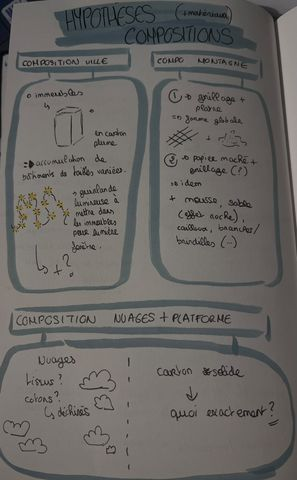 HYPOTHÈSES (+ matériaux)
COMPOSITIONS
COMPOSITION VILLE
o immeubles
en carton
plume
=> accumulation de
bâtiments de tailles variées.
-> guirlande
lumineuse à
mettre dans
les immeubles
pour lumière
fenêtre.
↳ + ?
COMPO MONTAGNE
① => grillage +
platre
=> forme globale
+
② => papier maché +
grillage (?)
=> idem
+ mousse, sable
(effet roche),
cailloux, branches/
brindilles (...)
COMPOSITION NUAGES + PLATFORME
Nuages
tissus ?
cotons ?
↳ déchirés
carton solide
↓
quoi exactement ?